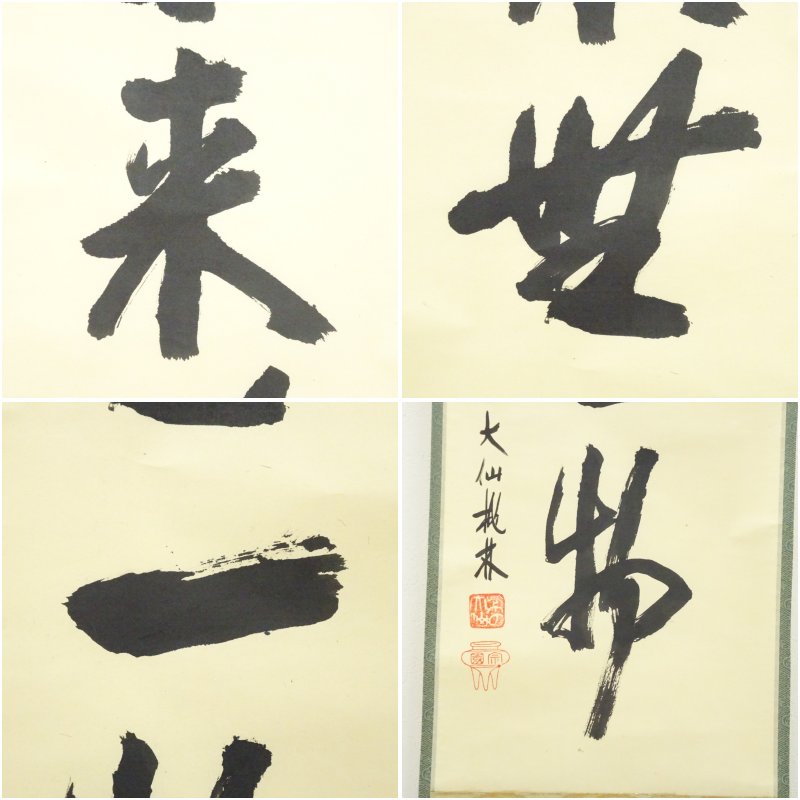 来
無
一
物
大仙桃林